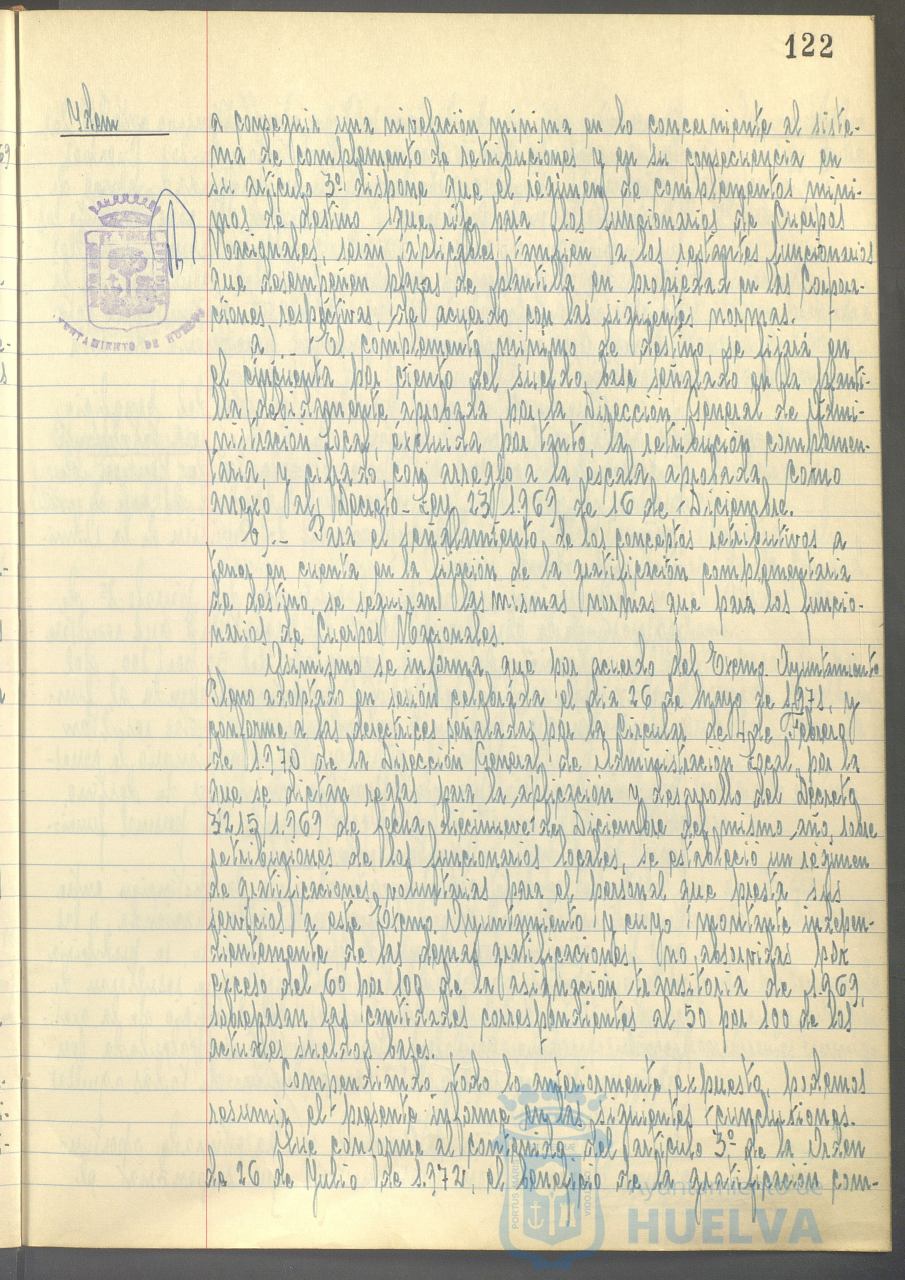 122
Idem
a conseguir una nivelación mínima en lo concerniente al siste-
ma de complemento de retribuciones y en su consecuencia en
su artículo 3º dispone que el régimen de complementos míni-
mos de destino que rije para los funcionarios de Cuerpos
Nacionales, serán aplicables tambien a los restantes funcionarios
que desempeñen plazas de plantilla en propiedad en las Corpora-
ciones respectivas, de acuerdo con las siguientes normas.
a).- El complemento mínimo de destino, se fijará en
el cincuenta por ciento del sueldo, base señalado en la planti-
lla debidamente aprobada por la Dirección General de Admi-
nistración Local, excluida por tanto, la retribución complemen-
taria, y cifrado con arreglo a la escala aprobada como
anexo al Decreto-Ley 23/1.969 de 16 de Diciembre.
b).- Para el señalamiento de los conceptos retributivos a
tener en cuenta en la fijación de la gratificación complementaria
de destino, se seguirán las mismas normas que para los funcio-
narios de Cuerpos Nacionales.
Asimismo se informa que por acuerdo del Excmo. Ayuntamiento
Pleno adoptado en sesión celebrada el día 26 de Mayo de 1.971, y
conforme a las directrices señaladas por la Circular de 4 de Febrero
de 1.970 de la Dirección General de Administración Local, por la
que se dictan reglas para la aplicación y desarrollo del Decreto
3215/1.969 de fecha diecinueve de Diciembre del mismo año, sobre
retribuciones de los funcionarios locales, se estableció un régimen
de gratificaciones voluntarias para el personal que presta sus
servicios a este Excmo. Ayuntamiento y cuyo montante indepen-
dientemente de las demás gratificaciones, no absorvidas por
exceso del 60 por 100 de la asignación transitoria de 1.969,
sobrepasan las cantidades correspondientes al 50 por 100 de los
actuales sueldos bases.
Compendiando todo lo anteriormente expuesto, podemos
resumir el presente informe en las siguientes conclusiones.
Que conforme al contenido del artículo 3º de la Orden
de 26 de Julio de 1.972, el beneficio de la gratificación com-
AYUNTAMIENTO DE HUELVA
Ayuntamiento de
HUELVA